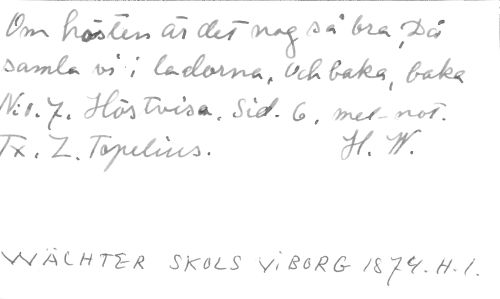 Om hösten är det nog så bra, Då
samla vi i ladorna, och baka, baka
N:o. 7. Höstvisa. Sid. 6. mel-not.
Tx. Z. Topelius. H. W.
WÄCHTER SKOLS VIBORG 1874. H. 1.